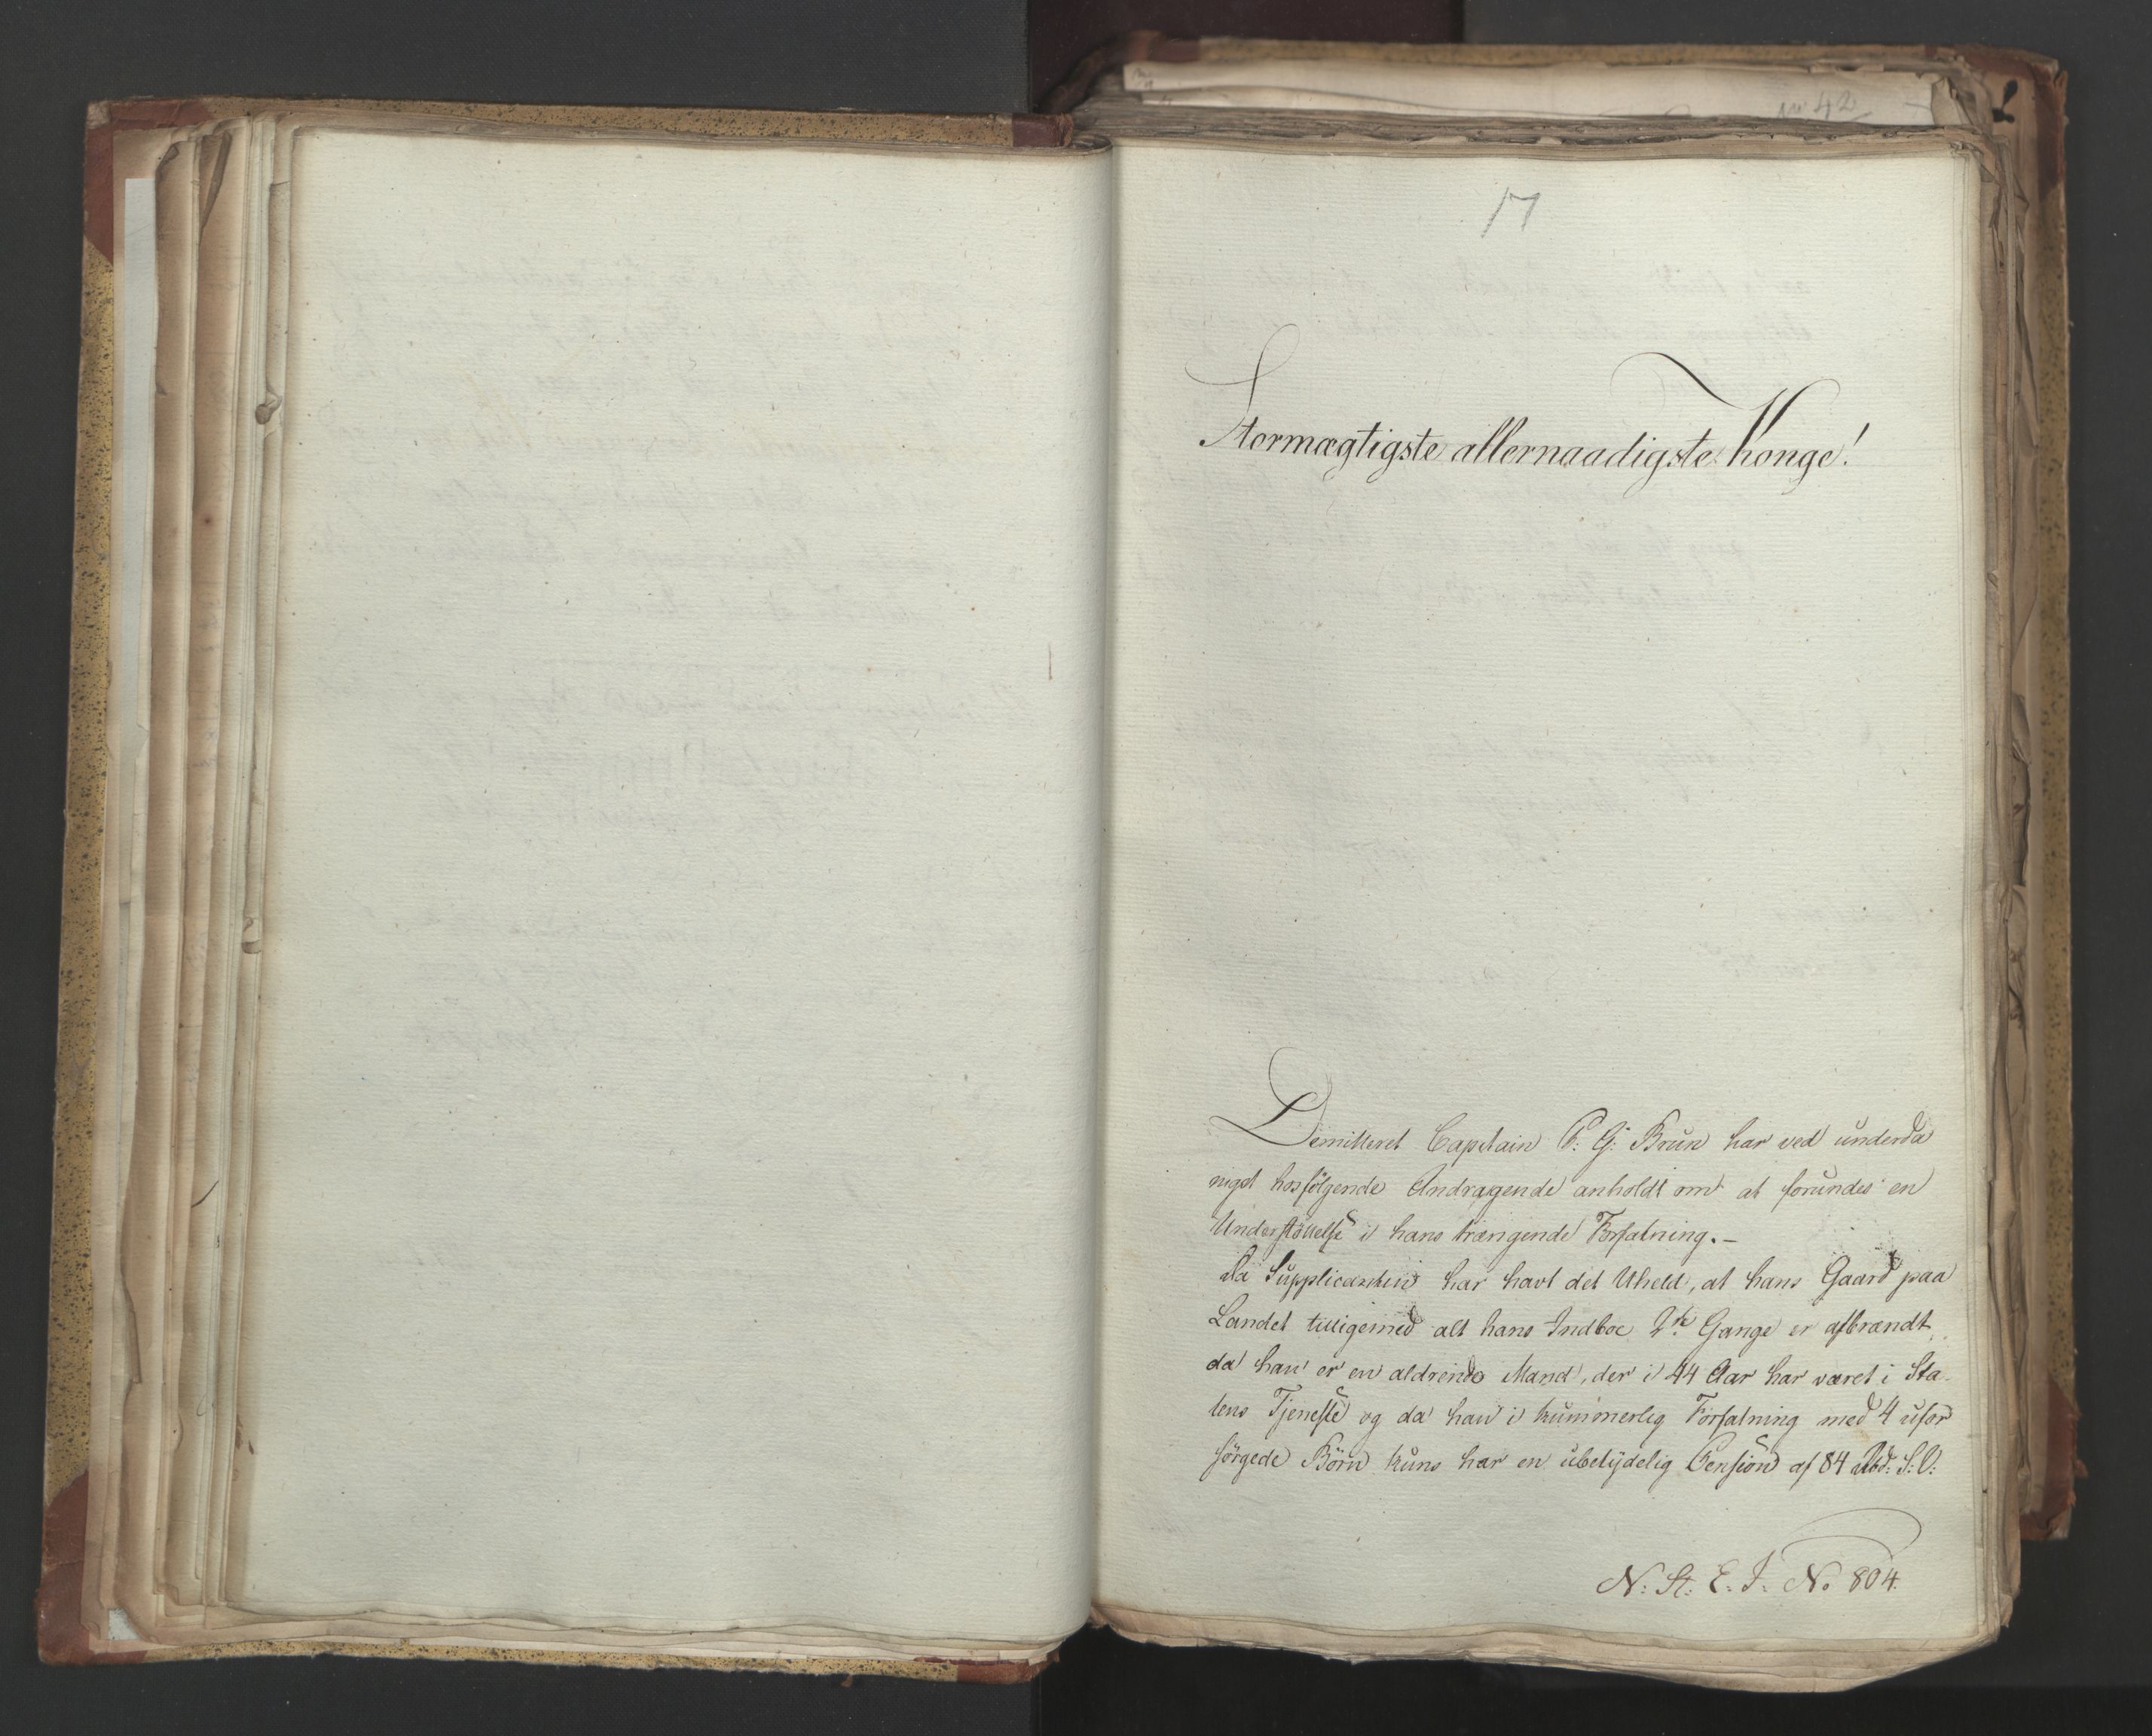 No 42
17
Stormægtigste allernaadigste Konge!
Demitteret Captain P: G: Brun har ved underda
nigst hosfölgende Andragende anholdt om at forundes en
Understöttelse i hans trængende Forfatning.–
Da Supplicanten har havt det Uheld, at hans Gaard paa
Landet tilligemed alt hans Indboe 2de Gange er afbrændt
da han er en aldrende Mand, der i 44 Aar har været i Sta-
tens Tjeneste og da han i kummerlig Forfatning med 4 ufor
sörgede Börn kuns har en ubetydelig Pension af 84 Rbd: S: V:
N: St: E: J: No 804.